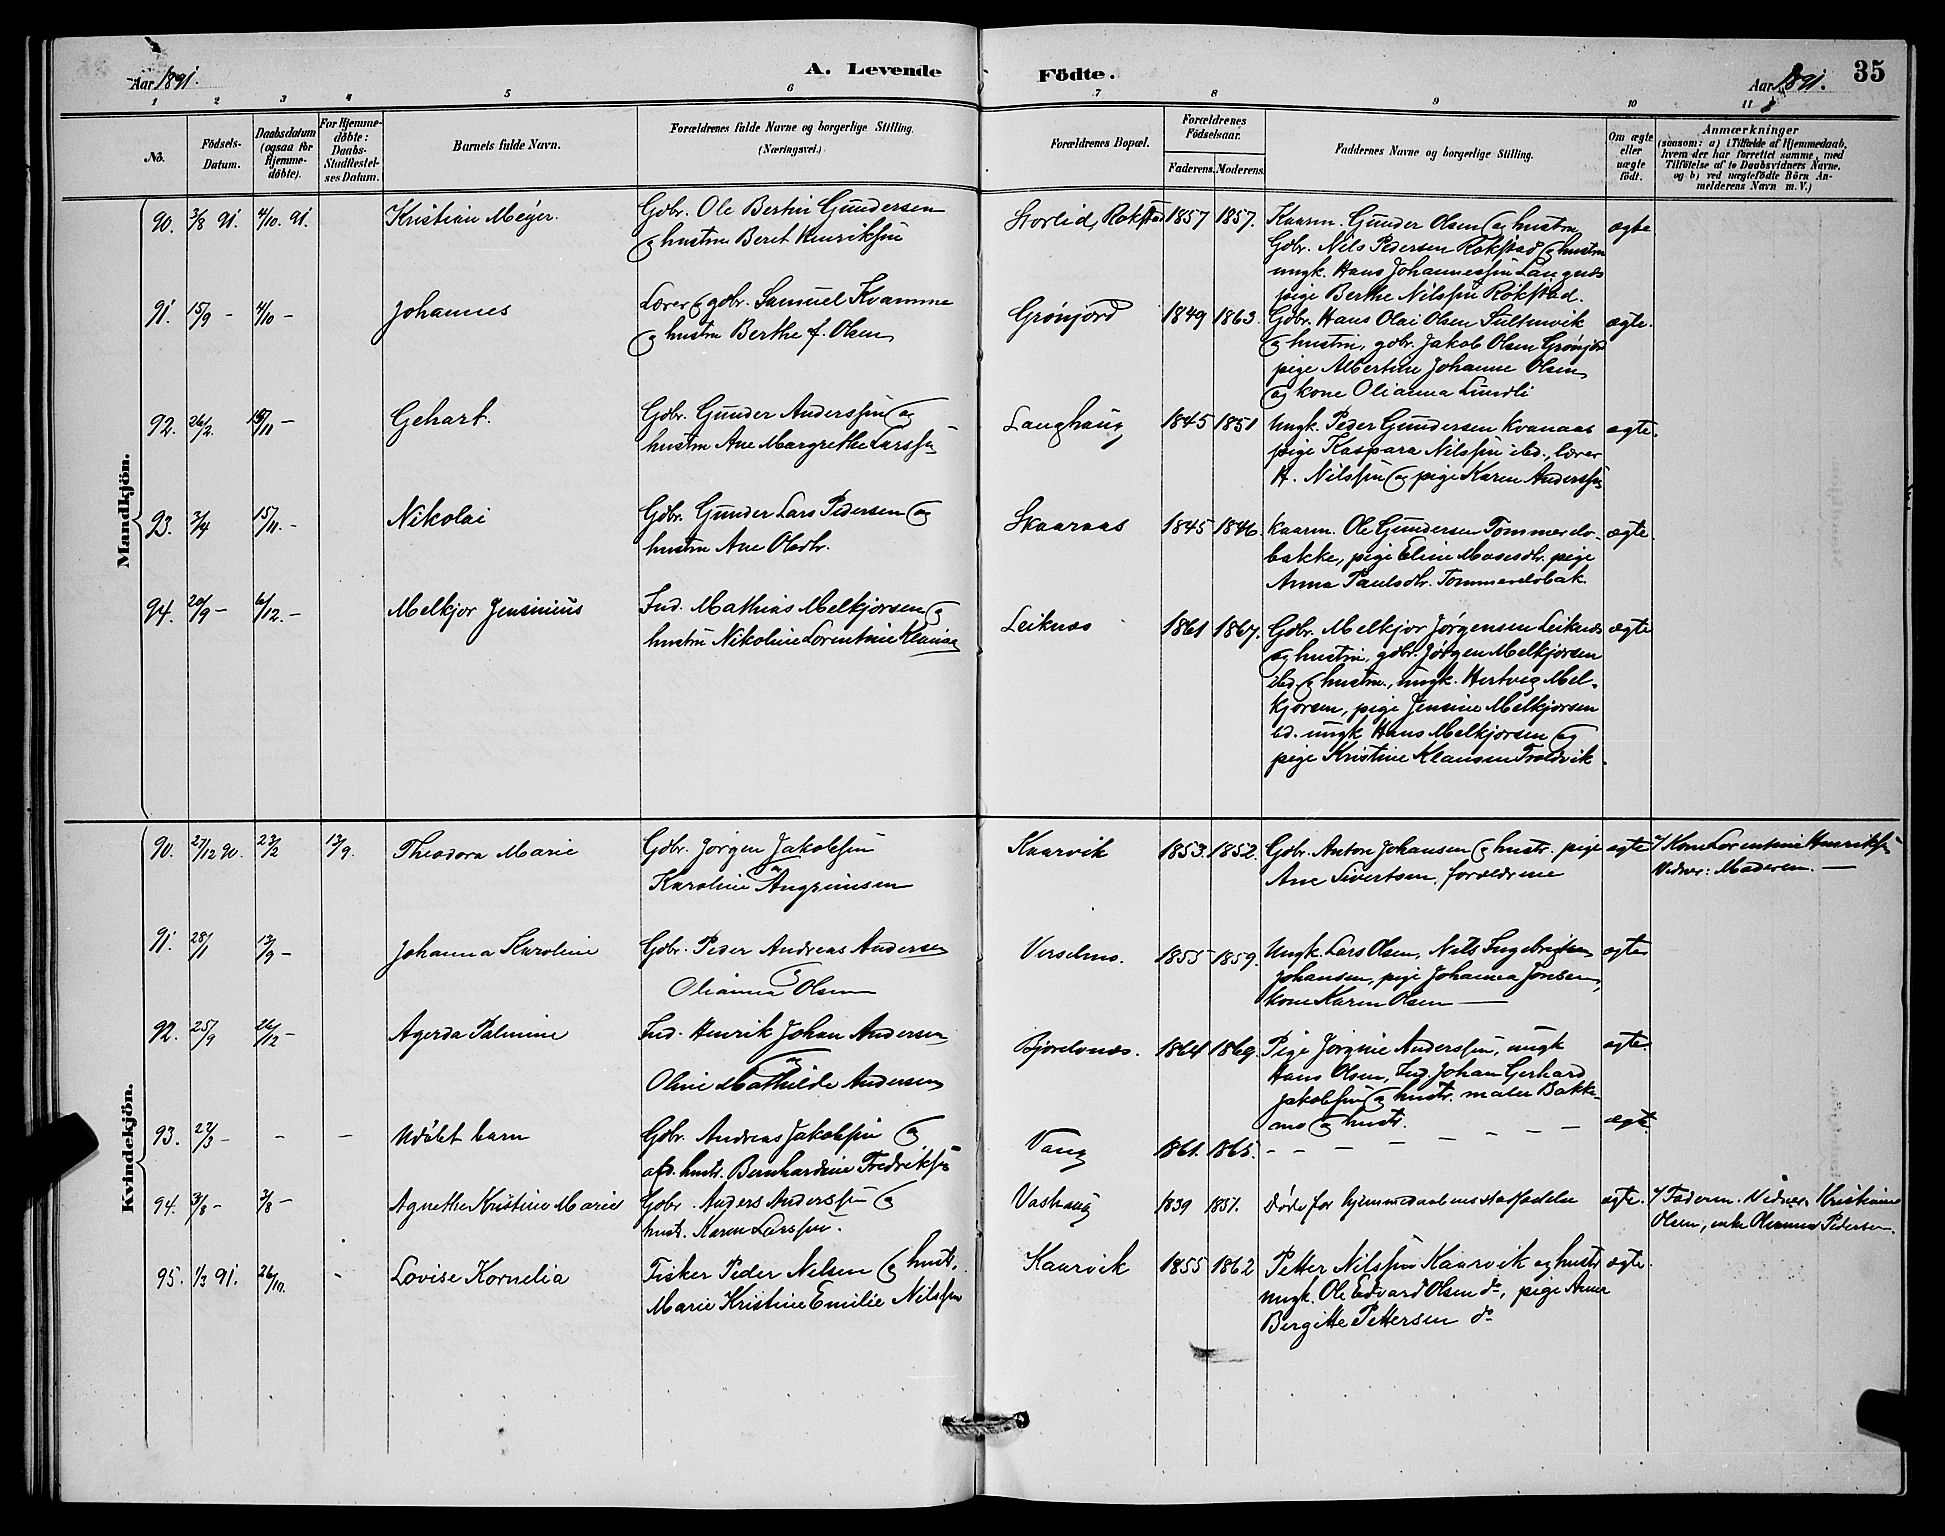 Aar 1891.
A. Levende Födte.
Aar 1891.
35
1 2 3 4 5 6 7 8 9 10 11
No.
Födsels-Datum.
Daabsdatum (ogsaa for Hjemme-döbte).
For Hjemme-döbte: Daabs-Stadfæstel-ses Datum.
Barnets fulde Navn.
Forældrenes fulde Navne og borgerlige Stilling. (Næringsvei.)
Forældrenes Bopæl.
Forældrenes Födselsaar.
Faderens. Moderens.
Faddernes Navne og borgerlige Stilling.
Om ægte eller uægte födt.
Anmærkninger
(saasom: a) i Tilfælde af Hjemmedaab, hvem der har forrettet samme, med Tilföielse af to Daabsvidners Navne. og b) ved uægtefödte Börn An-melderens Navn m. V.)
Mandkjön.
90. 3/8 91. 4/10. 91. Kristian Meyer. Gdbr. Ole Bertin Gundersen Storlid, Rokstad 1857 1857. Kaarm. Gunder Olsen og hustru ægte
og hustru Beret Henriksen Gdbr. Nils Pedersen Rokstad og hustru
ungk. Hans Johannessen Langnes
pige Berthe Nilssen Rokstad.
91. 15/9 - 4/10 - Johannes Lærer og gdbr. Samuel Kvamme Grønjord 1849 1863. Gdbr. Hans Olai Olsen Sultenvik ægte.
og hustru Berthe f. Olsen og hustru, gdbr. Jakob Olsen Grønjord
pige Albertine Johanne Olsen
og kone Olianna Lundli
92. 26/2. 15/11 - Gehart. Gdbr. Gunder Anderssen og Langhaug 1845 1851 Ungk. Peder Gundersen Kvanaas ægte.
hustru Ane Margrethe Larssen pige Kaspara Nilssen ibd., lærer
H. Nilssen og pige Karen Anderssen
93. 3/4 15/11. - Nikolai Gdbr. Gunder Lars Pedersen og Skaaraas 1845 1846. Kaarm. Ole Gundersen Tommerdo- ægte.
hustru Ane Olsdtr. bakke, pige Eline Mosesdtr. pige
Anna Paulsdtr. Tommerdobak.
94. 20/9 - 6/12. - Melkjor Jensinius Ind. Mathias Melkjorsen og Leiknes 1861 1867. Gdbr. Melkjor Jørgensen Leiknes ægte
hustru Nikoline Lorentine Klausen og hustru, gdbr. Jørgen Melkjorsen
ibd. og hustru, ungk. Hertvig Mel-
kjorsen, pige Jensine Melkjorsen
ibd. ungk Hans Melkjorsen og
pige Kristine Klausen Troldvik.
Kvindekjön.
90. 27/12 90. 23/2 13/9. Theodora Marie Gdbr. Jørgen Jakobsen Kaarvik 1853. 1852. Gdbr. Anton Johansen og hustr. pige ægte Kone Lorentine Henriksen
og Karoline Angrimsen Ane Sivertsen, forældrene Vidner: Moderen. —
91. 28/1 13/9 - Johanna Karoline Gdbr. Peder Andreas Andersen 1855 1859. Ungk. Lars Olsen, Nils Ingebrigtsen ægte
og Olianna Olsen Johansen, pige Johanna Jonsen,
kone Karen Olsen —
92. 25/9 26/12 - Agerda Palmine Ind. Henrik Johan Andersen Bjørelvnes. 1864 1869. Pige Jørgine Anderssen, ungk ægte.
og Hans Olsen, Ind. Johan Gerhard
Oline Mathilde Andersen Jakobsen og hustr. maler Bakke-
mo og hustr.
93. 22/3 - - - Udöbt barn Gdbr. Andreas Jakobsen og Vang 1861. 1865. - - - - - - - - ægte.
afd. hustr. Bernhardine Fredriksen
94. 3/8 - 3/8 - Agnethe Kristine Marie Gdbr. Anders Anderssen og Vashaug 1839 1851. Døde før hjemmedaabens stadfæstelse ægte. Faderen. Vidner: Kristiane
hust. Karen Larssen. Olsen, enke Pedersen.
95. 1/3 91. 26/10. - Lovise Kornelia Fisker Peder Nelsen og hust. Kaarvik 1855 1862 Petter Nilssen Kaarvik og hustr ægte.
Marie Kristine Emilie Nilssen ungk. Ole Edvard Olsen do, pige Anna
Bergitte Pettersen do